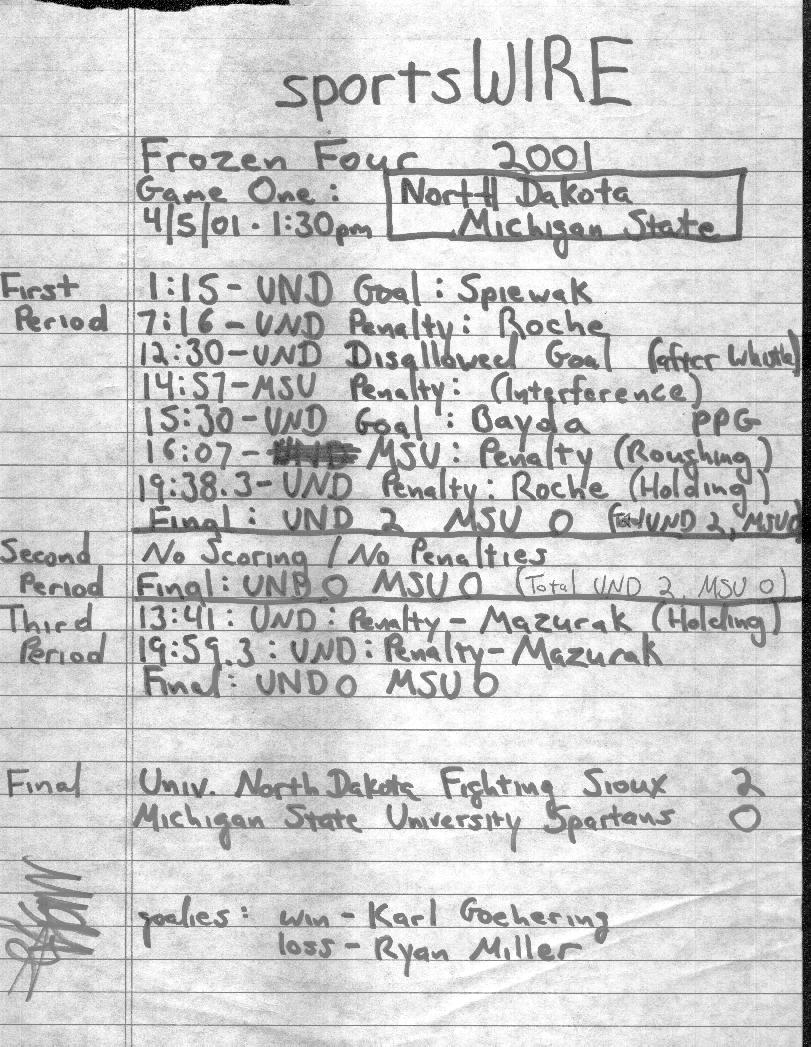 sportsWIRE
Frozen Four 2001
Game One: North Dakota
4/5/01 · 1:30pm Michigan State
First 1:15 - UND Goal: Spiewak
Period 7:16 - UND Penalty: Roche
12:30 - UND Disallowed Goal (after whistle)
14:57 - MSU Penalty: (Interference)
15:30 - UND Goal: Bayda PPG
16:07 - MSU: Penalty (Roughing)
19:38.3 - UND Penalty: Roche (Holding)
Final: UND 2 MSU 0 (Total UND 2, MSU 0
Second No Scoring / No Penalties
Period Final: UND 0 MSU 0 (Total UND 2, MSU 0)
Third 13:41: UND: Penalty - Mazurak (Holding)
Period 19:59.3: UND: Penalty - Mazurak
Final: UND 0 MSU 0
Final Univ. North Dakota Fighting Sioux 2
Michigan State University Spartans 0
goalies: win - Karl Goehering
loss - Ryan Miller